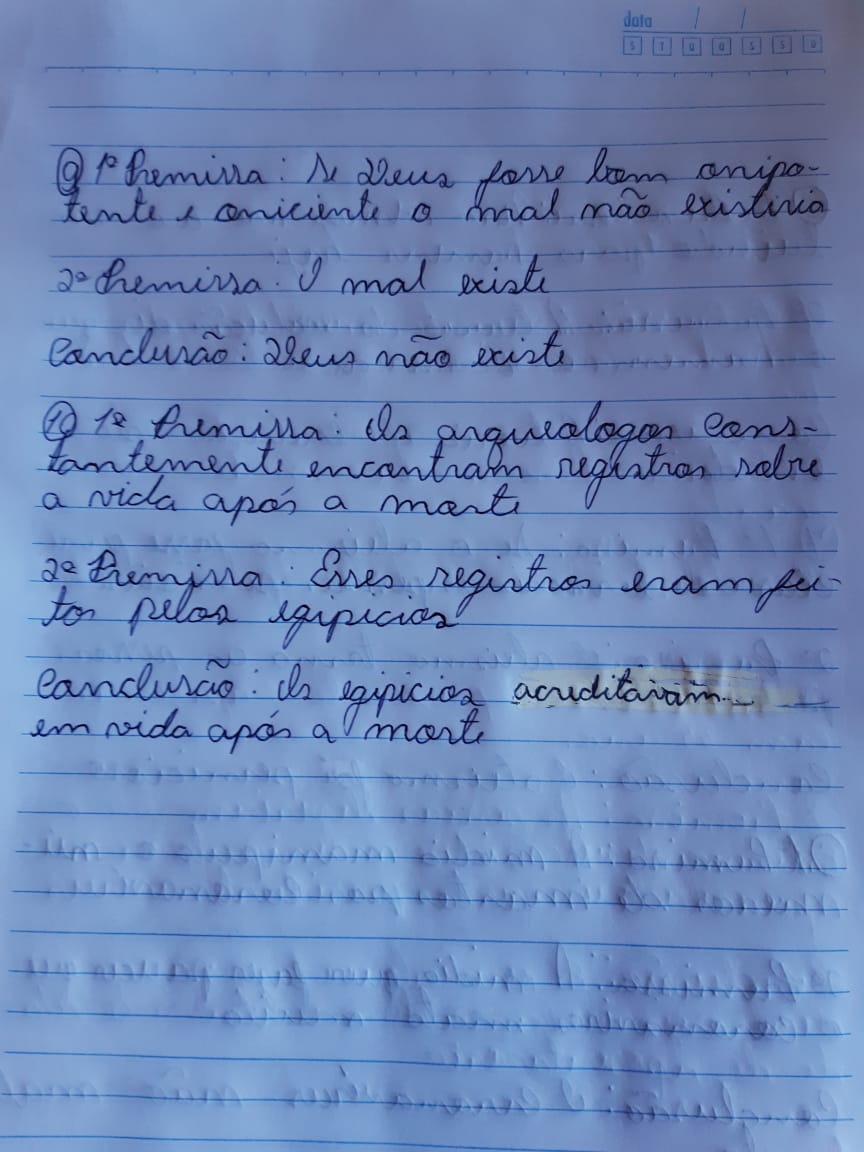 data / /
S T Q Q S S D
9 1º Premissa: Se Deus fosse bom onipo-
tente e oniciente o mal não existiria
2º Premissa: O mal existe
Conclusão: Deus não existe
10 1ª Premissa: Os arquealogos cons-
tantemente encontram registros sobre
a vida após a morte
2ª Premissa: Esses registros eram fei-
tos pelos egipicios
Conclusão: Os egipicios acreditavam
em vida após a morte